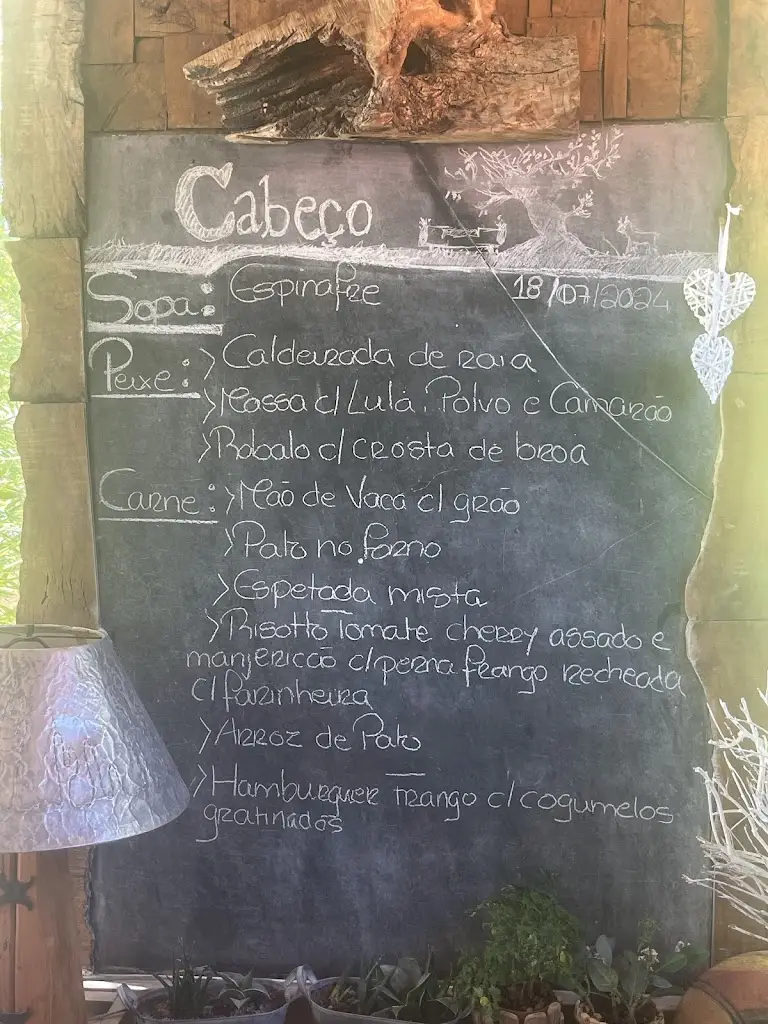 Cabeço
Sopa: Espinafre 18/07/2024
Peixe: >Caldeirada de raia
>Massa c/ Lula, Polvo e Camarão
>Robalo c/ crosta de broa
Carne: >Mão de Vaca c/ grão
>Pato no forno
>Espetada mista
>Risotto Tomate cherry assado e
manjericão c/perna frango recheada
c/ farinheira
>Arroz de Pato
>Hamburguer frango c/ cogumelos
gratinados